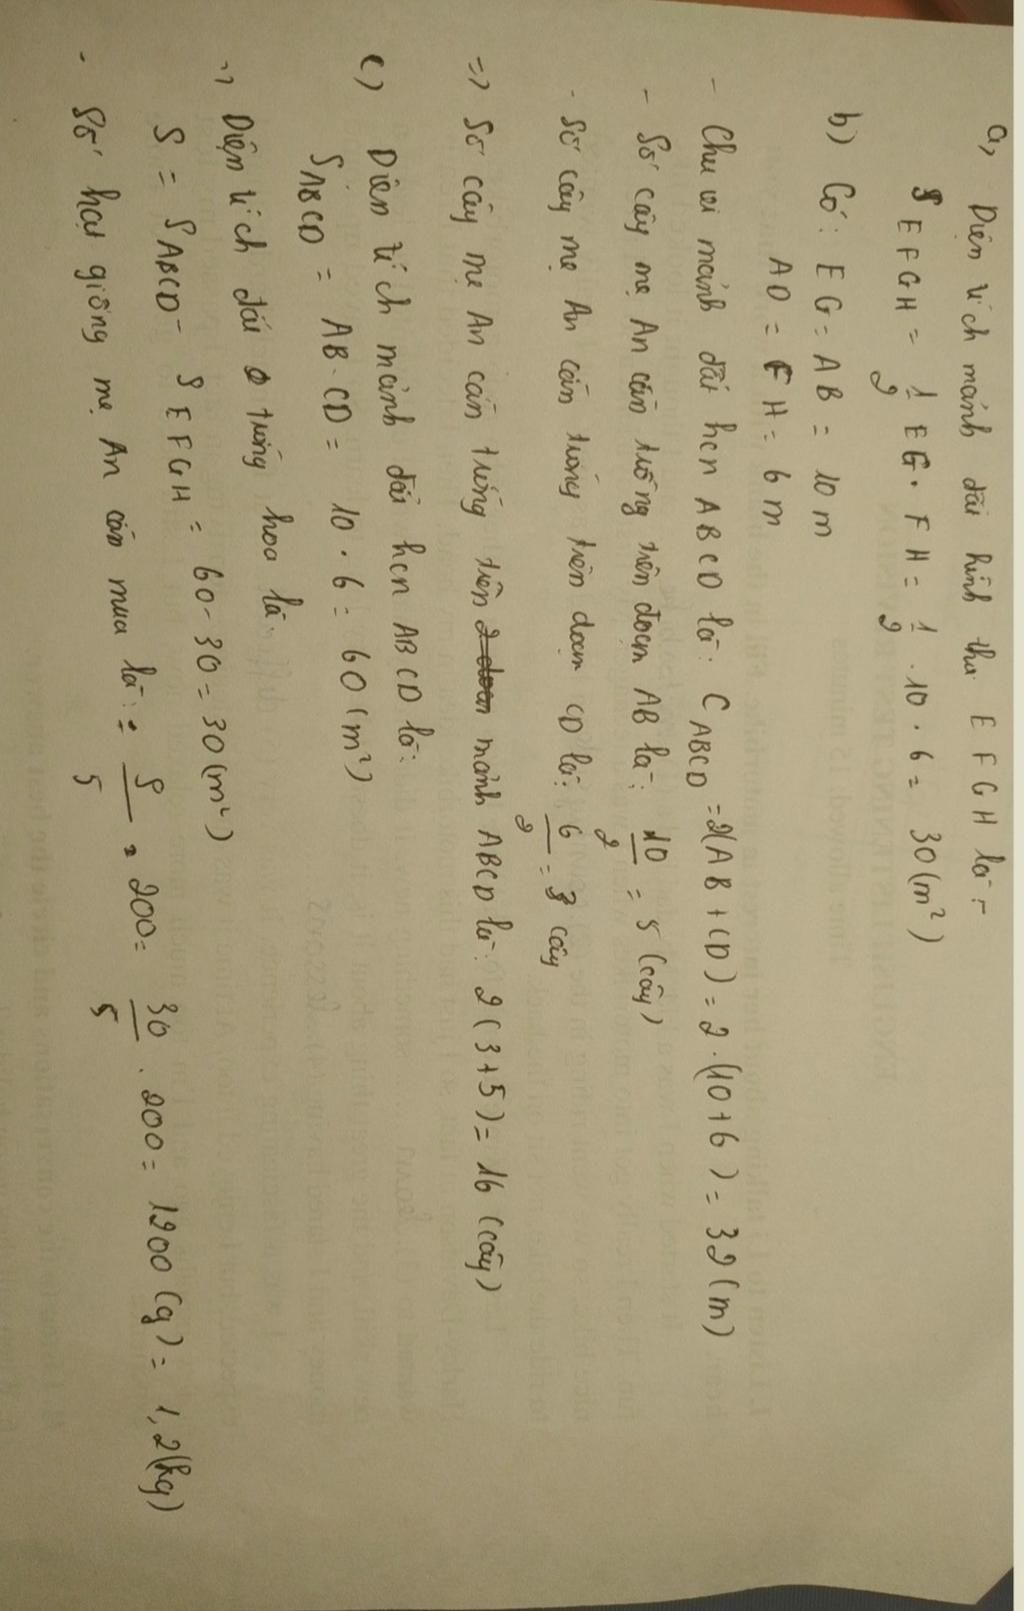 a, Diện tích mảnh đất hình thoi EFGH là:
S EFGH = 1/2 EG . FH = 1/2 . 10 . 6 = 30 (m²)
b) Có: EG = AB = 10 m
AD = FH = 6 m
- Chu vi mảnh đất hcn ABCD là: C ABCD = 2(AB + CD) = 2 . (10 + 6) = 32 (m)
- Số cây mẹ An cần trồng trên đoạn AB là: 10/2 = 5 (cây)
- Số cây mẹ An cần trồng trên đoạn CD là: 6/2 = 3 cây
=) Số cây mẹ An cần trồng trên mảnh ABCD là: 2 (3 + 5) = 16 (cây)
c) Diện tích mảnh đất hcn ABCD là:
S ABCD = AB . CD = 10 . 6 = 60 (m²)
=) Diện tích đất trồng hoa là
S = S ABCD - S EFGH = 60 - 30 = 30 (m²)
- Số hạt giống mẹ An cần mua là: S/5 . 200 = 30/5 . 200 = 1200 (g) = 1,2 (kg)